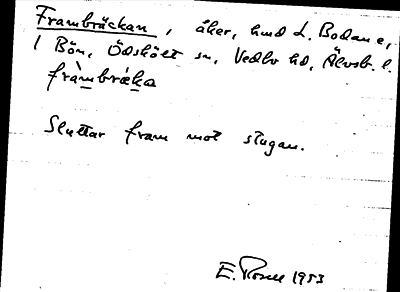 Frambräckan, åker, hmd L. Bodane,
1 Bön, Ödskölt sn, Vedbo hd, Älvsb. l.
fràmbräka
Sluttar fram mot stugan.
E. Rosell 1953